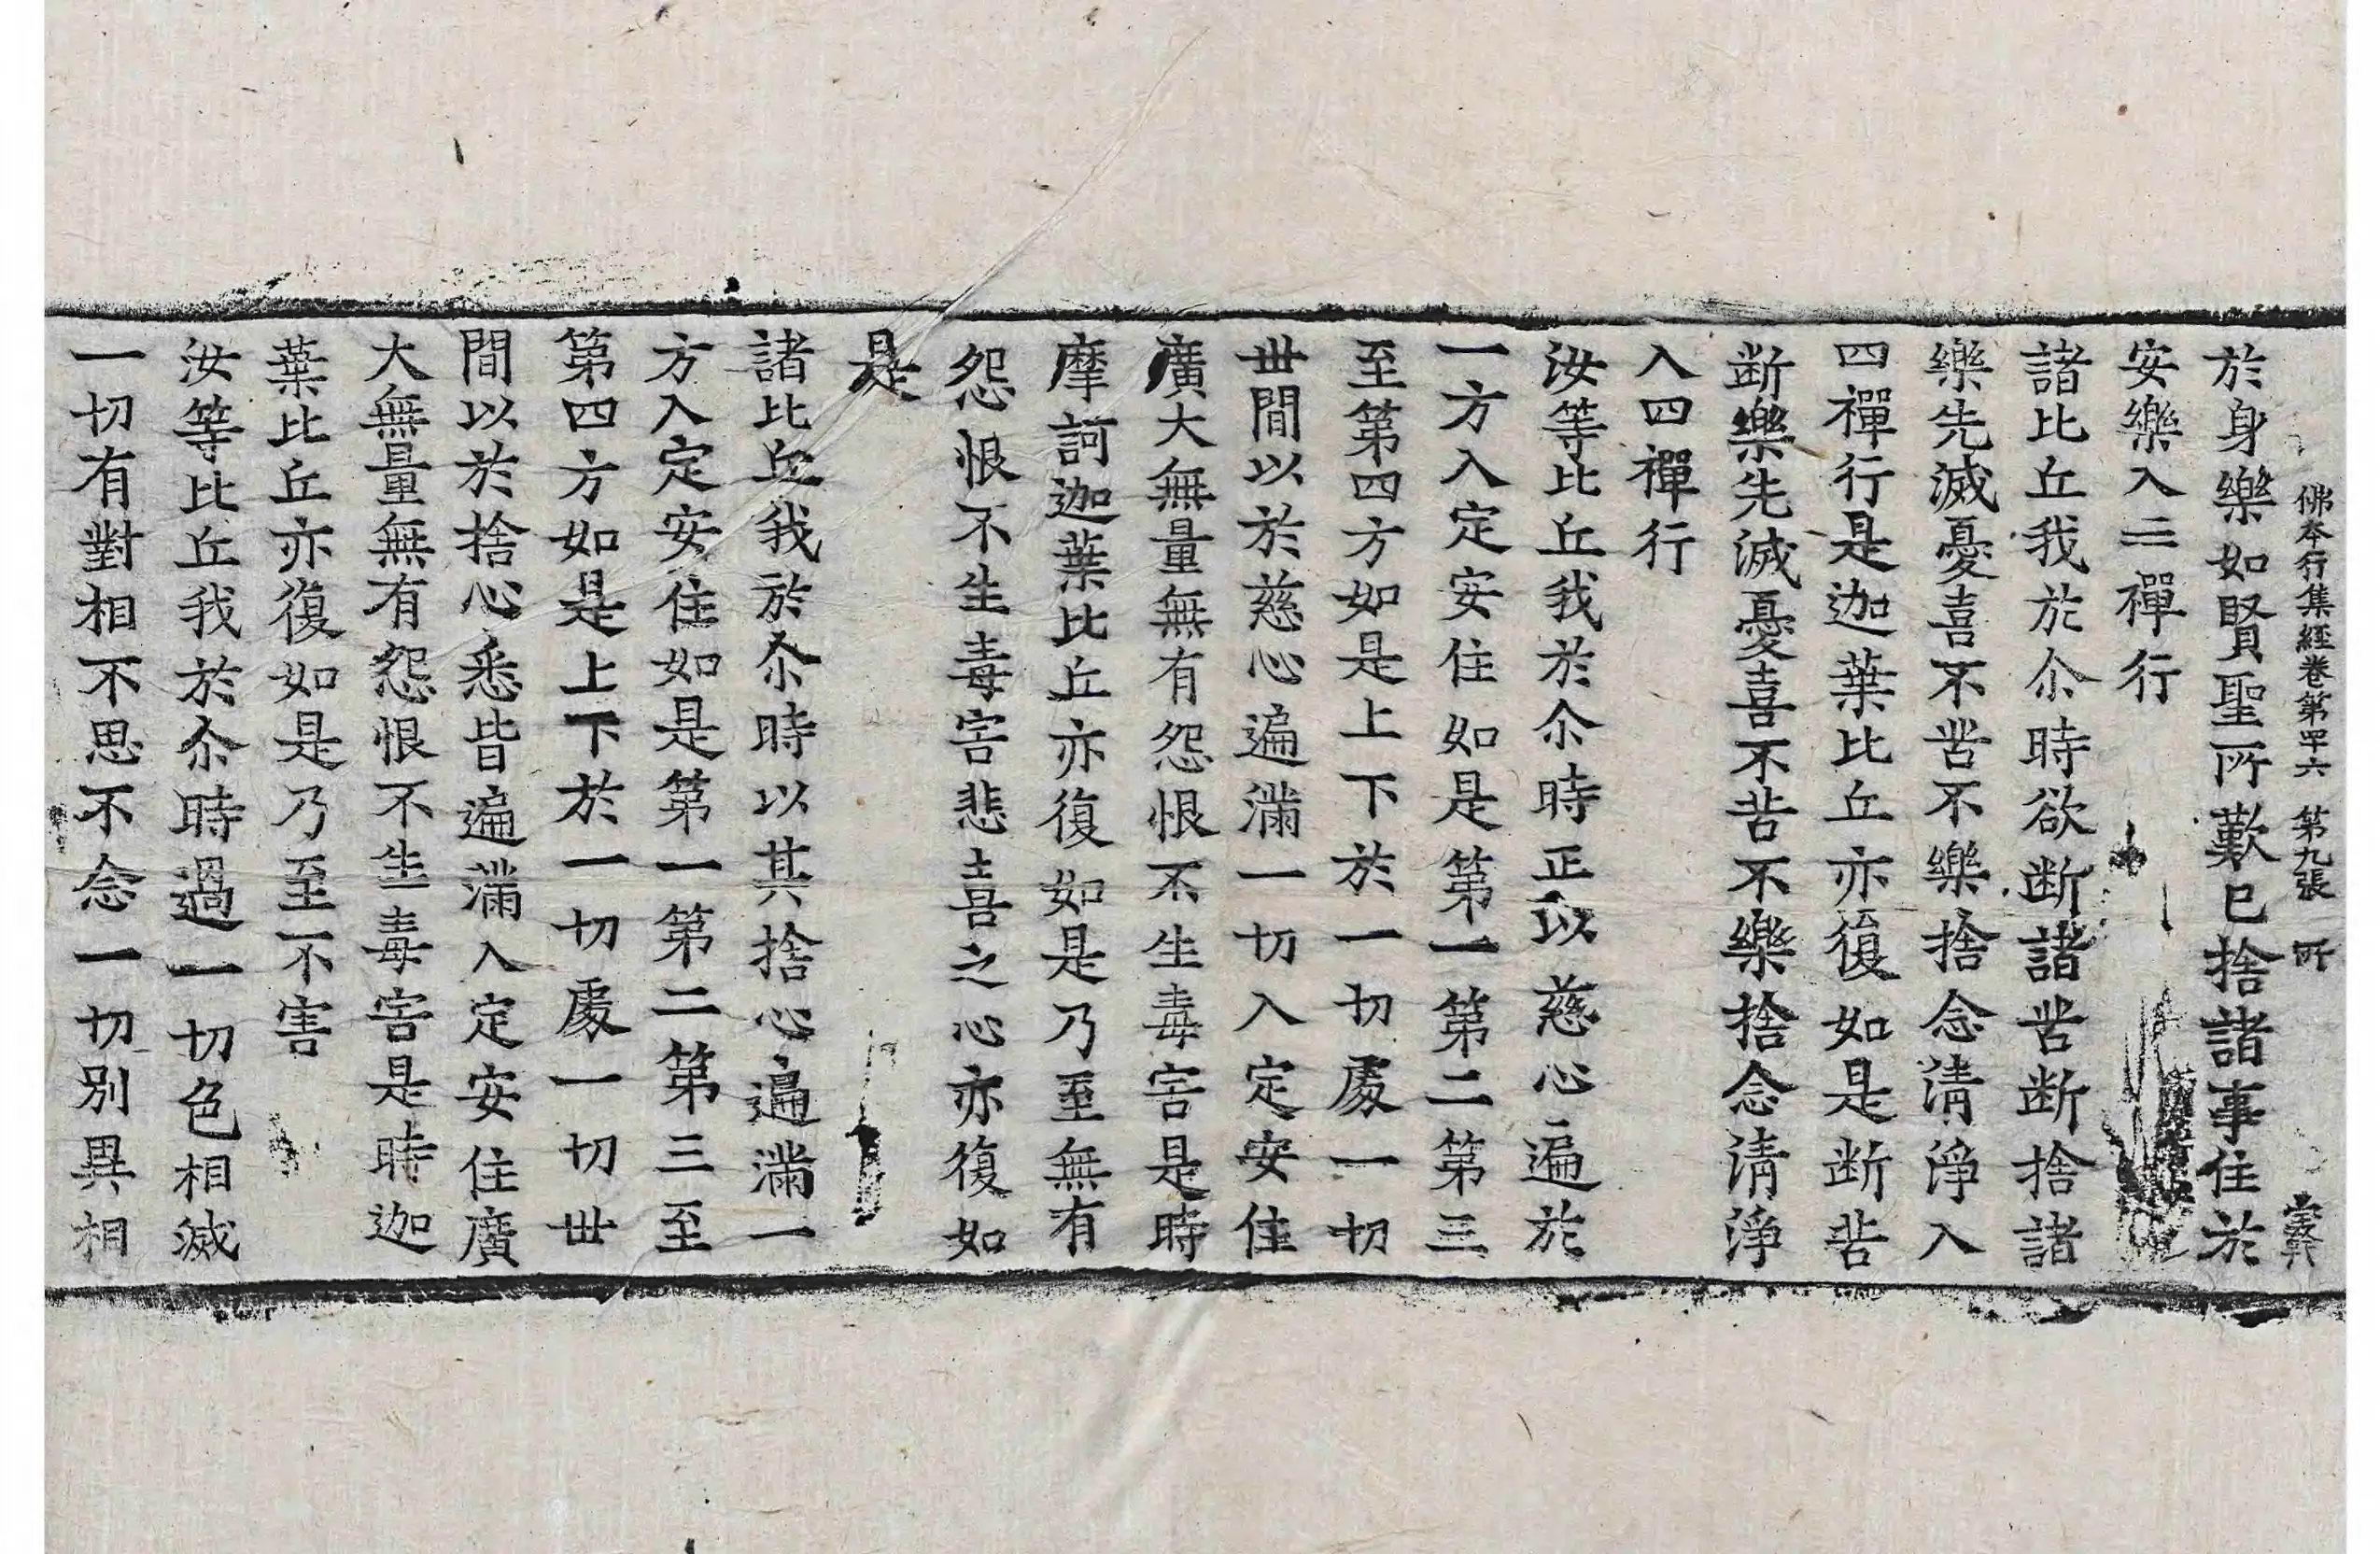 佛本行集經卷第四十六 第九張 所
於身樂如賢聖所歎已捨諸事住於
安樂入三禪行
諸比丘我於尒時欲断諸苦断捨諸
樂先滅憂喜不苦不樂捨念清淨入
四禪行是迦葉比丘亦復如是断苦
断樂先滅憂喜不苦不樂捨念清淨
入四禪行
汝等比丘我於尒時正以慈心遍於
一方入定安住如是第一第二第三
至第四方如是上下於一切處一切
世間以於慈心遍滿一切入定安住
廣大無量無有怨恨不生毒害是時
摩訶迦葉比丘亦復如是乃至無有
怨恨不生毒害悲喜之心亦復如
是
諸比丘我於尒時以其捨心遍滿一
方入定安住如是第一第二第三至
第四方如是上下於一切處一切世
間以於捨心悉皆遍滿入定安住廣
大無量無有怨恨不生毒害是時迦
葉比丘亦復如是乃至不害
汝等比丘我於尒時過一切色相滅
一切有對相不思不念一切別異相